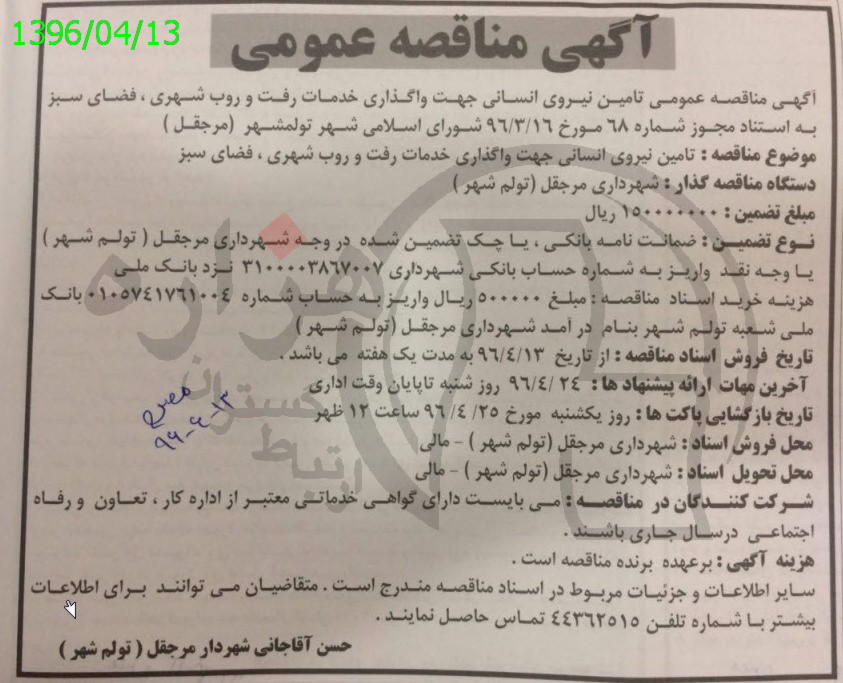 1396/04/13
آگهی مناقصه عمومی
آگهی مناقصه عمومی تامین نیروی انسانی جهت واگذاری خدمات رفت و روب شهری ، فضای سبز
به استناد مجوز شماره ۶۸ مورخ ۹۶/۳/۱۶ شورای اسلامی شهر تولمشهر (مرجقل )
موضوع مناقصه : تامین نیروی انسانی جهت واگذاری خدمات رفت و روب شهری ، فضای سبز
دستگاه مناقصه گذار : شهرداری مرجقل (تولم شهر )
مبلغ تضمین : ۱۵۰۰۰۰۰۰۰ ریال
نوع تضمین : ضمانت نامه بانکی ، یا چک تضمین شده در وجه شهرداری مرجقل ( تولم شهر )
یا وجه نقد واریز به شماره حساب بانکی شهرداری ۳۱۰۰۰۰۳۸۶۷۰۰۷ نزد بانک ملی
هزینه خرید اسناد مناقصه : مبلغ ۵۰۰۰۰۰ ریال واریز به حساب شماره ۰۱۰۵۷۴۱۷۶۱۰۰۴ بانک
ملی شعبه تولم شهر بنام در آمد شهرداری مرجقل (تولم شهر )
تاریخ فروش اسناد مناقصه : از تاریخ ۹۶/۴/۱۳ به مدت یک هفته می باشد .
آخرین مهات ارائه پیشنهاد ها : ۲۴ /۹۶/۴ روز شنبه تاپایان وقت اداری
تاریخ بازگشایی پاکت ها : روز یکشنبه مورخ ۲۵/ ۴/ ۹۶ ساعت ۱۲ ظهر
محل فروش اسناد : شهرداری مرجقل (تولم شهر ) – مالی
محل تحویل اسناد : شهرداری مرجقل (تولم شهر ) – مالی
شرکت کنندگان در مناقصه : می بایست دارای گواهی خدماتی معتبر از اداره کار ، تعاون و رفاه
اجتماعی درسال جاری باشند .
هزینه آگهی : برعهده برنده مناقصه است .
سایر اطلاعات و جزئیات مربوط در اسناد مناقصه مندرج است . متقاضیان می توانند برای اطلاعات
بیشتر با شماره تلفن ۴۴۳۶۲۵۱۵ تماس حاصل نمایند .
حسن آقاجانی شهردار مرجقل ( تولم شهر )
هزاره
گستران
ارتباط
۹۶-۴-۱۳